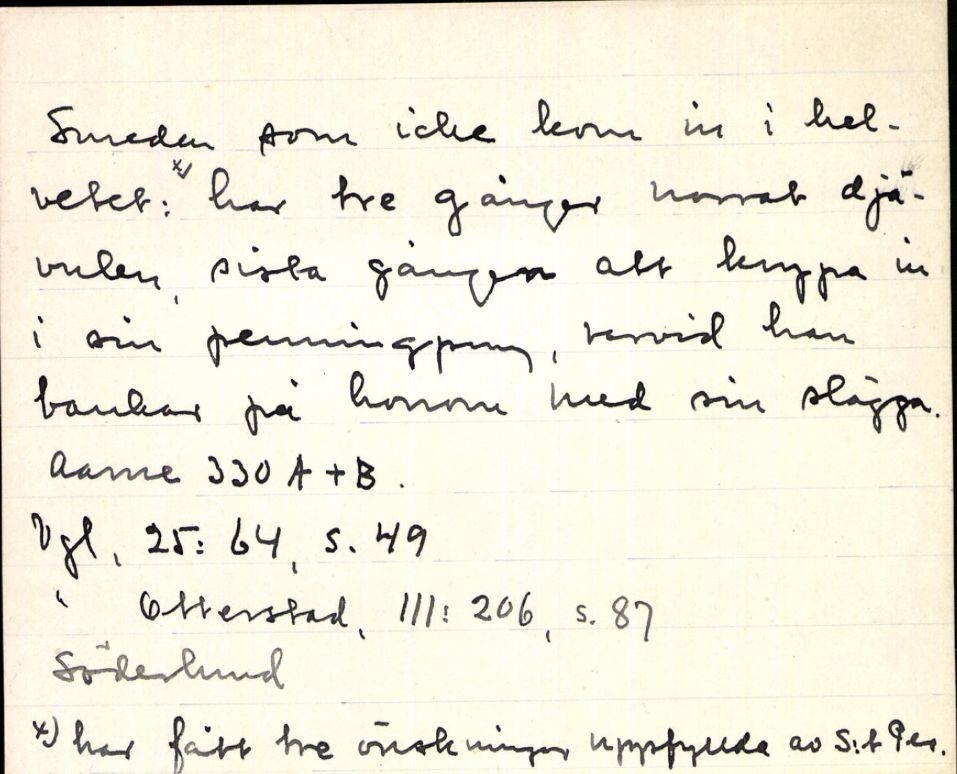 Smeden som icke kom in i hel-
vetet: x) har tre gånger narrat djä-
vulen, sista gången att krypa in
i sin penningpung, varvid han
bankar på honom med sin slägga.
Aarne 330 A + B.
Vgl, 25: 64, s. 49
" Otterstad, III: 206, s. 87
Söderlund
x) har fått tre önskningar uppfyllda av S:t Per.